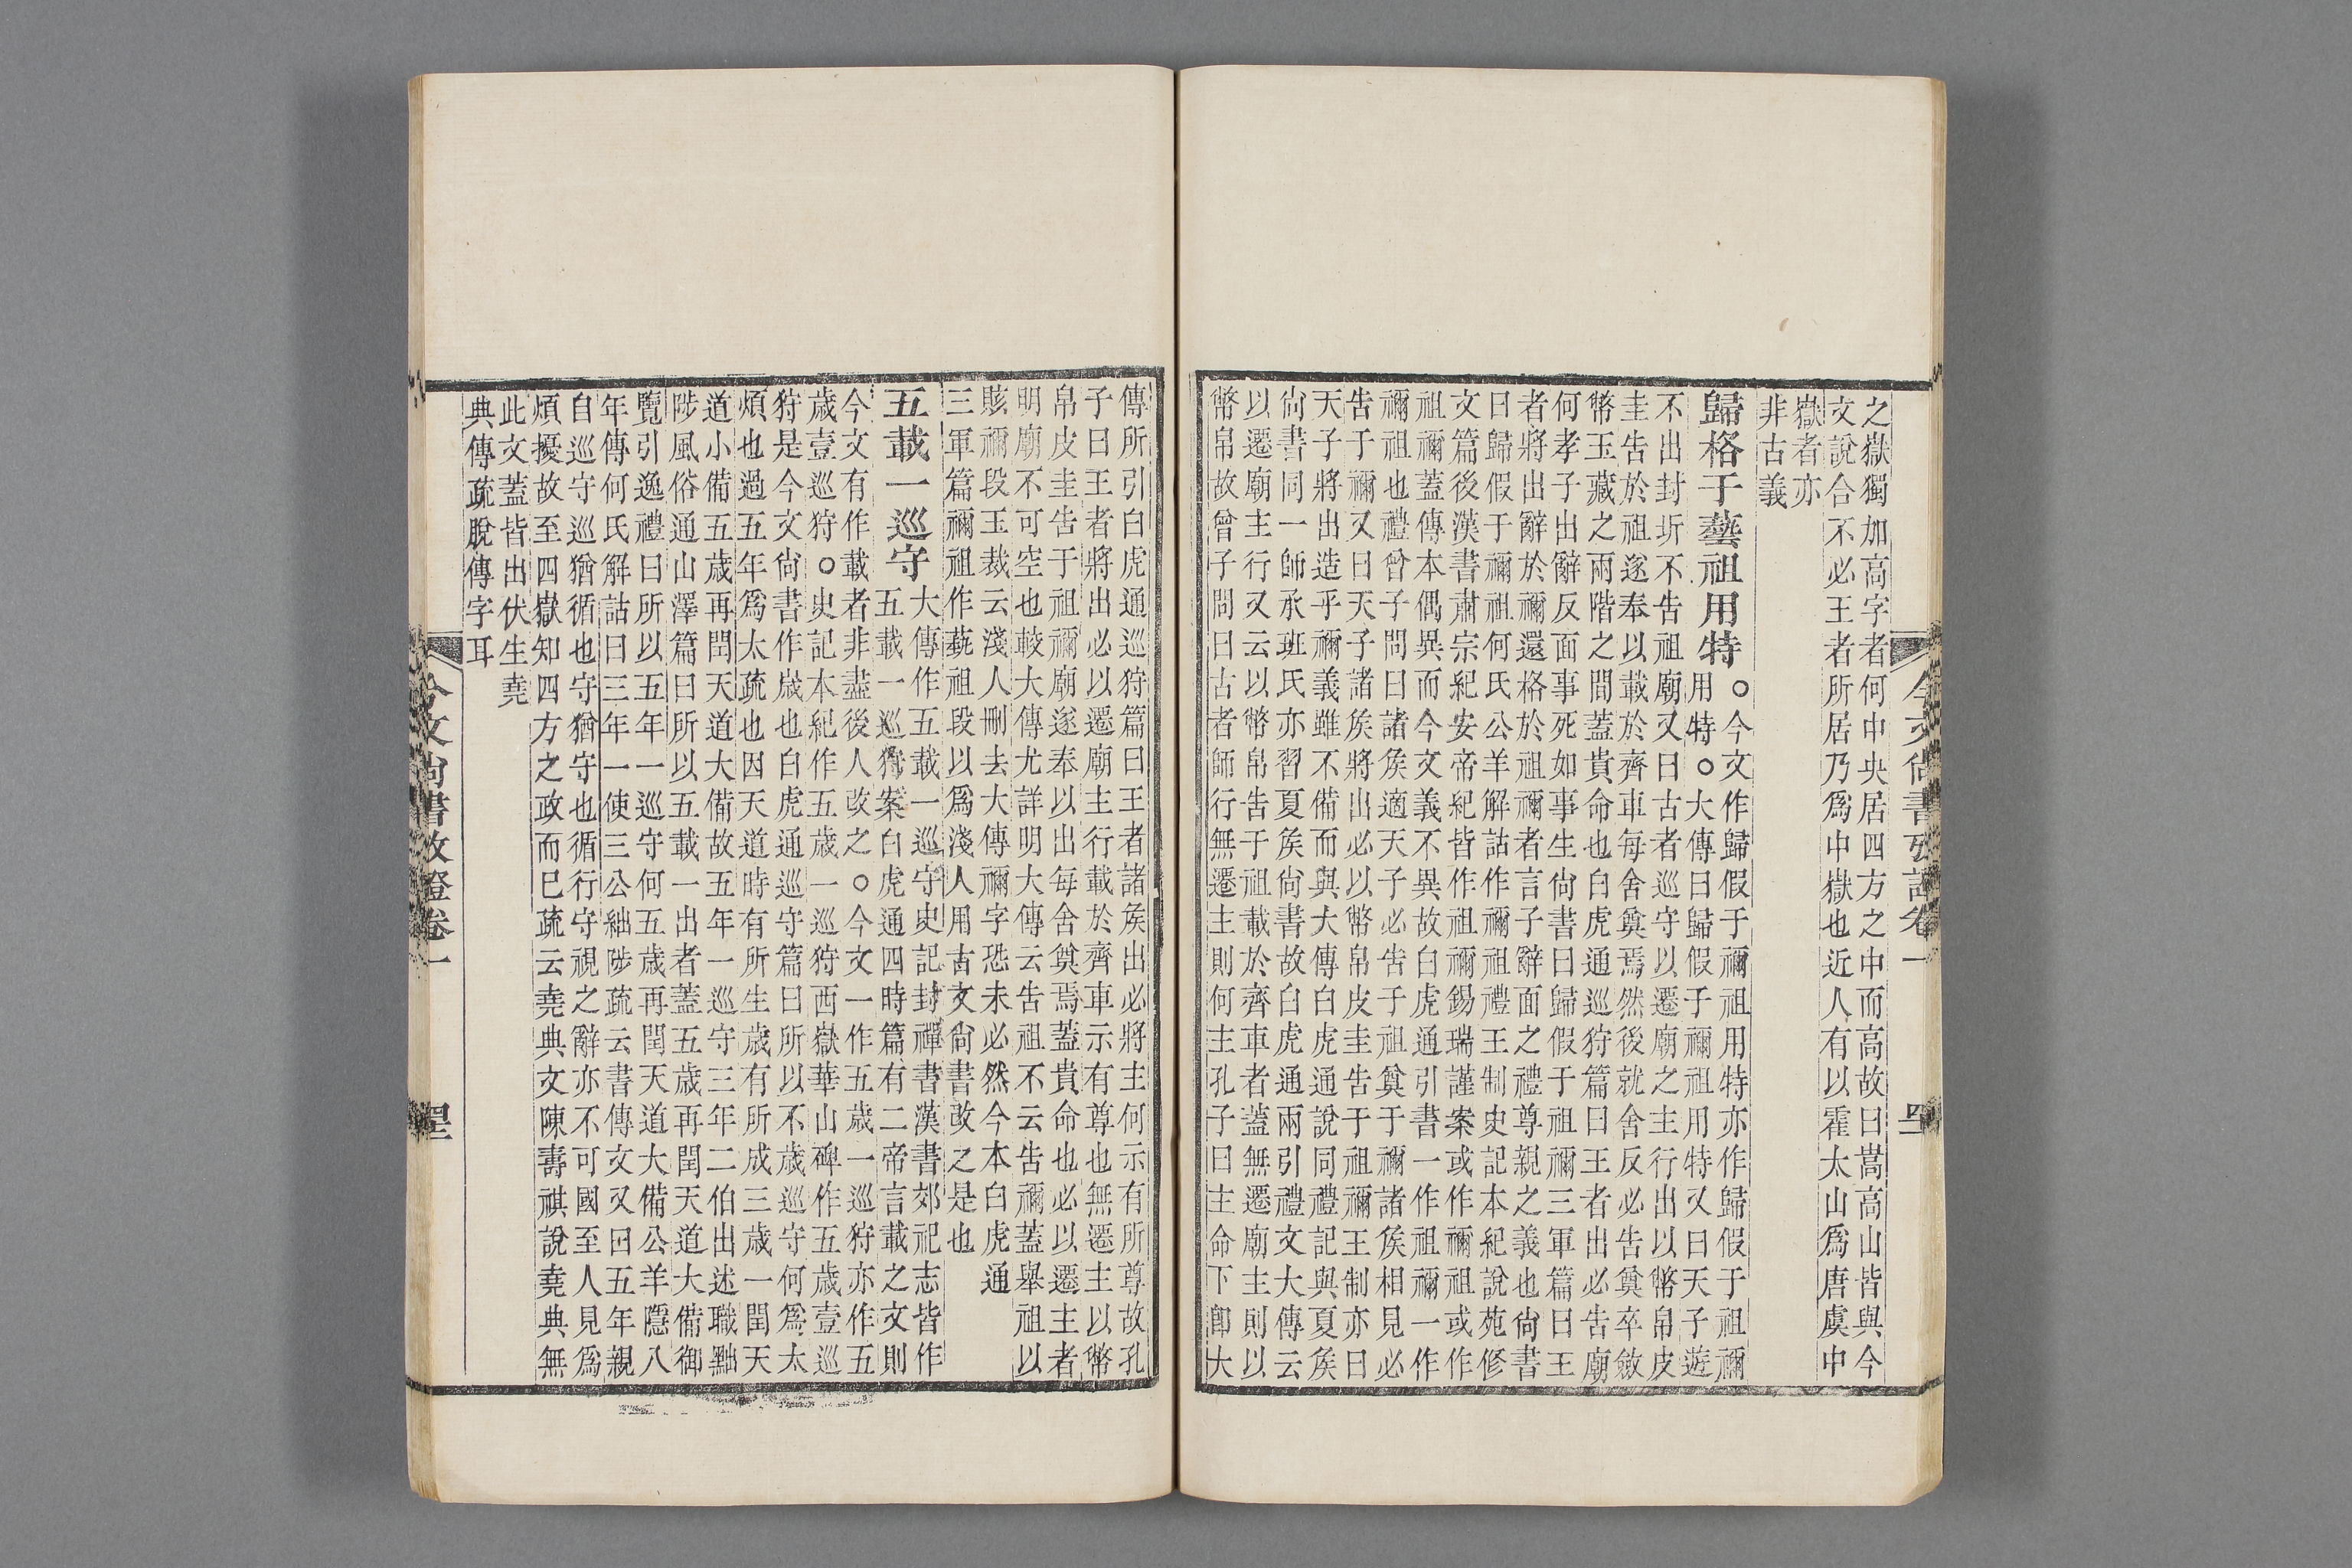 今文尚書攷證卷一
之嶽獨加高字者何中央居四方之中而高故曰嵩高山皆與今
文說合不必王者所居乃爲中嶽也近人有以霍太山爲唐虞中
嶽者亦
非古義
歸格于藝祖用特
○今文作歸假于禰祖用特亦作歸假于祖禰
用特○大傳曰歸假于禰祖用特又曰天子遊
不出封圻不告祖廟又曰古者巡守以遷廟之主行出以幣帛皮
圭告於祖遂奉以載於齊車每舍奠焉然後就舍反必告奠卒斂
幣玉藏之兩階之間蓋貴命也白虎通巡狩篇曰王者出必告廟
何孝子出辭反面事死如事生尚書曰歸假于祖禰三軍篇曰王
者將出辭於禰還格於祖禰者言子辭面之禮尊親之義也尚書
曰歸假于禰祖何氏公羊解詁作禰祖禮王制史記本紀說苑修
文篇後漢書肅宗紀安帝紀皆作祖禰錫瑞謹案或作禰祖或作
祖禰蓋傳本偶異而今文義不異故白虎通引書一作祖禰一作
禰祖也禮曾子問曰諸矦適天子必告于祖奠于禰諸矦相見必
告于禰又曰天子諸矦將出必以幣帛皮圭告于祖禰王制亦曰
天子將出造乎禰義雖不備而與大傳白虎通說同禮記與夏矦
尚書同一師承班氏亦習夏矦尚書故白虎通兩引禮文大傳云
以遷廟主行又云以幣帛告于祖載於齊車者蓋無遷廟主則以
幣帛故曾子問曰古者師行無遷主則何主孔子曰主命下卽大
傳所引白虎通巡狩篇曰王者諸矦出必將主何示有所尊故孔
子曰王者將出必以遷廟主行載於齊車示有尊也無遷主以幣
帛皮圭告于祖禰廟遂奉以出每舍奠焉蓋貴命也必以遷主者
明廟不可空也較大傳尤詳明大傳云告祖不云告禰蓋舉祖以
賅禰段玉裁云淺人刪去大傳禰字恐未必然今本白虎通
三軍篇禰祖作蓺祖段以爲淺人用古文尚書改之是也
五載一巡守
大傳作五載一巡守史記封禪書漢書郊祀志皆作
五載一巡狩案白虎通四時篇有二帝言載之文則
今文有作載者非盡後人改之○今文一作五歲一巡狩亦作五
歲壹巡狩○史記本紀作五歲一巡狩西嶽華山碑作五歲壹巡
狩是今文尚書作歲也白虎通巡守篇曰所以不歲巡守何爲太
煩也過五年爲太疏也因天道時有所生歲有所成三歲一閏天
道小備五歲再閏天道大備故五年一巡守三年二伯出述職黜
陟風俗通山澤篇曰所以五載一出者蓋五歲再閏天道大備御
覽引逸禮曰所以五年一巡守何五歲再閏天道大備公羊隱八
年傳何氏解詁曰三年一使三公絀陟疏云書傳文又曰五年親
自巡守巡猶循也守猶守也循行守視之辭亦不可國至人見爲
煩擾故至四嶽知四方之政而已疏云堯典文陳壽祺說堯典無
此文蓋皆出伏生堯
典傳疏脫傳字耳
今文尚書攷證卷一